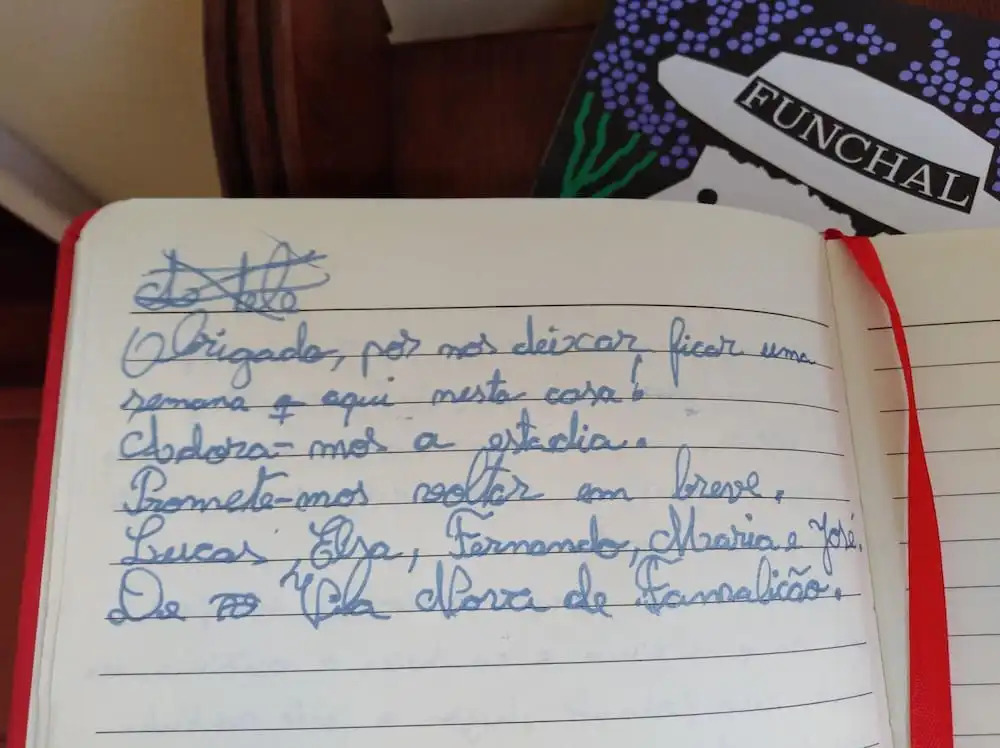 FUNCHAL
Obrigado, por nos deixar ficar uma
semana aqui nesta casa!
Adora-mos a estadia.
Promete-mos voltar em breve.
Lucas, Elsa, Fernando, Maria e José.
De Vila Nova de Famalicão.